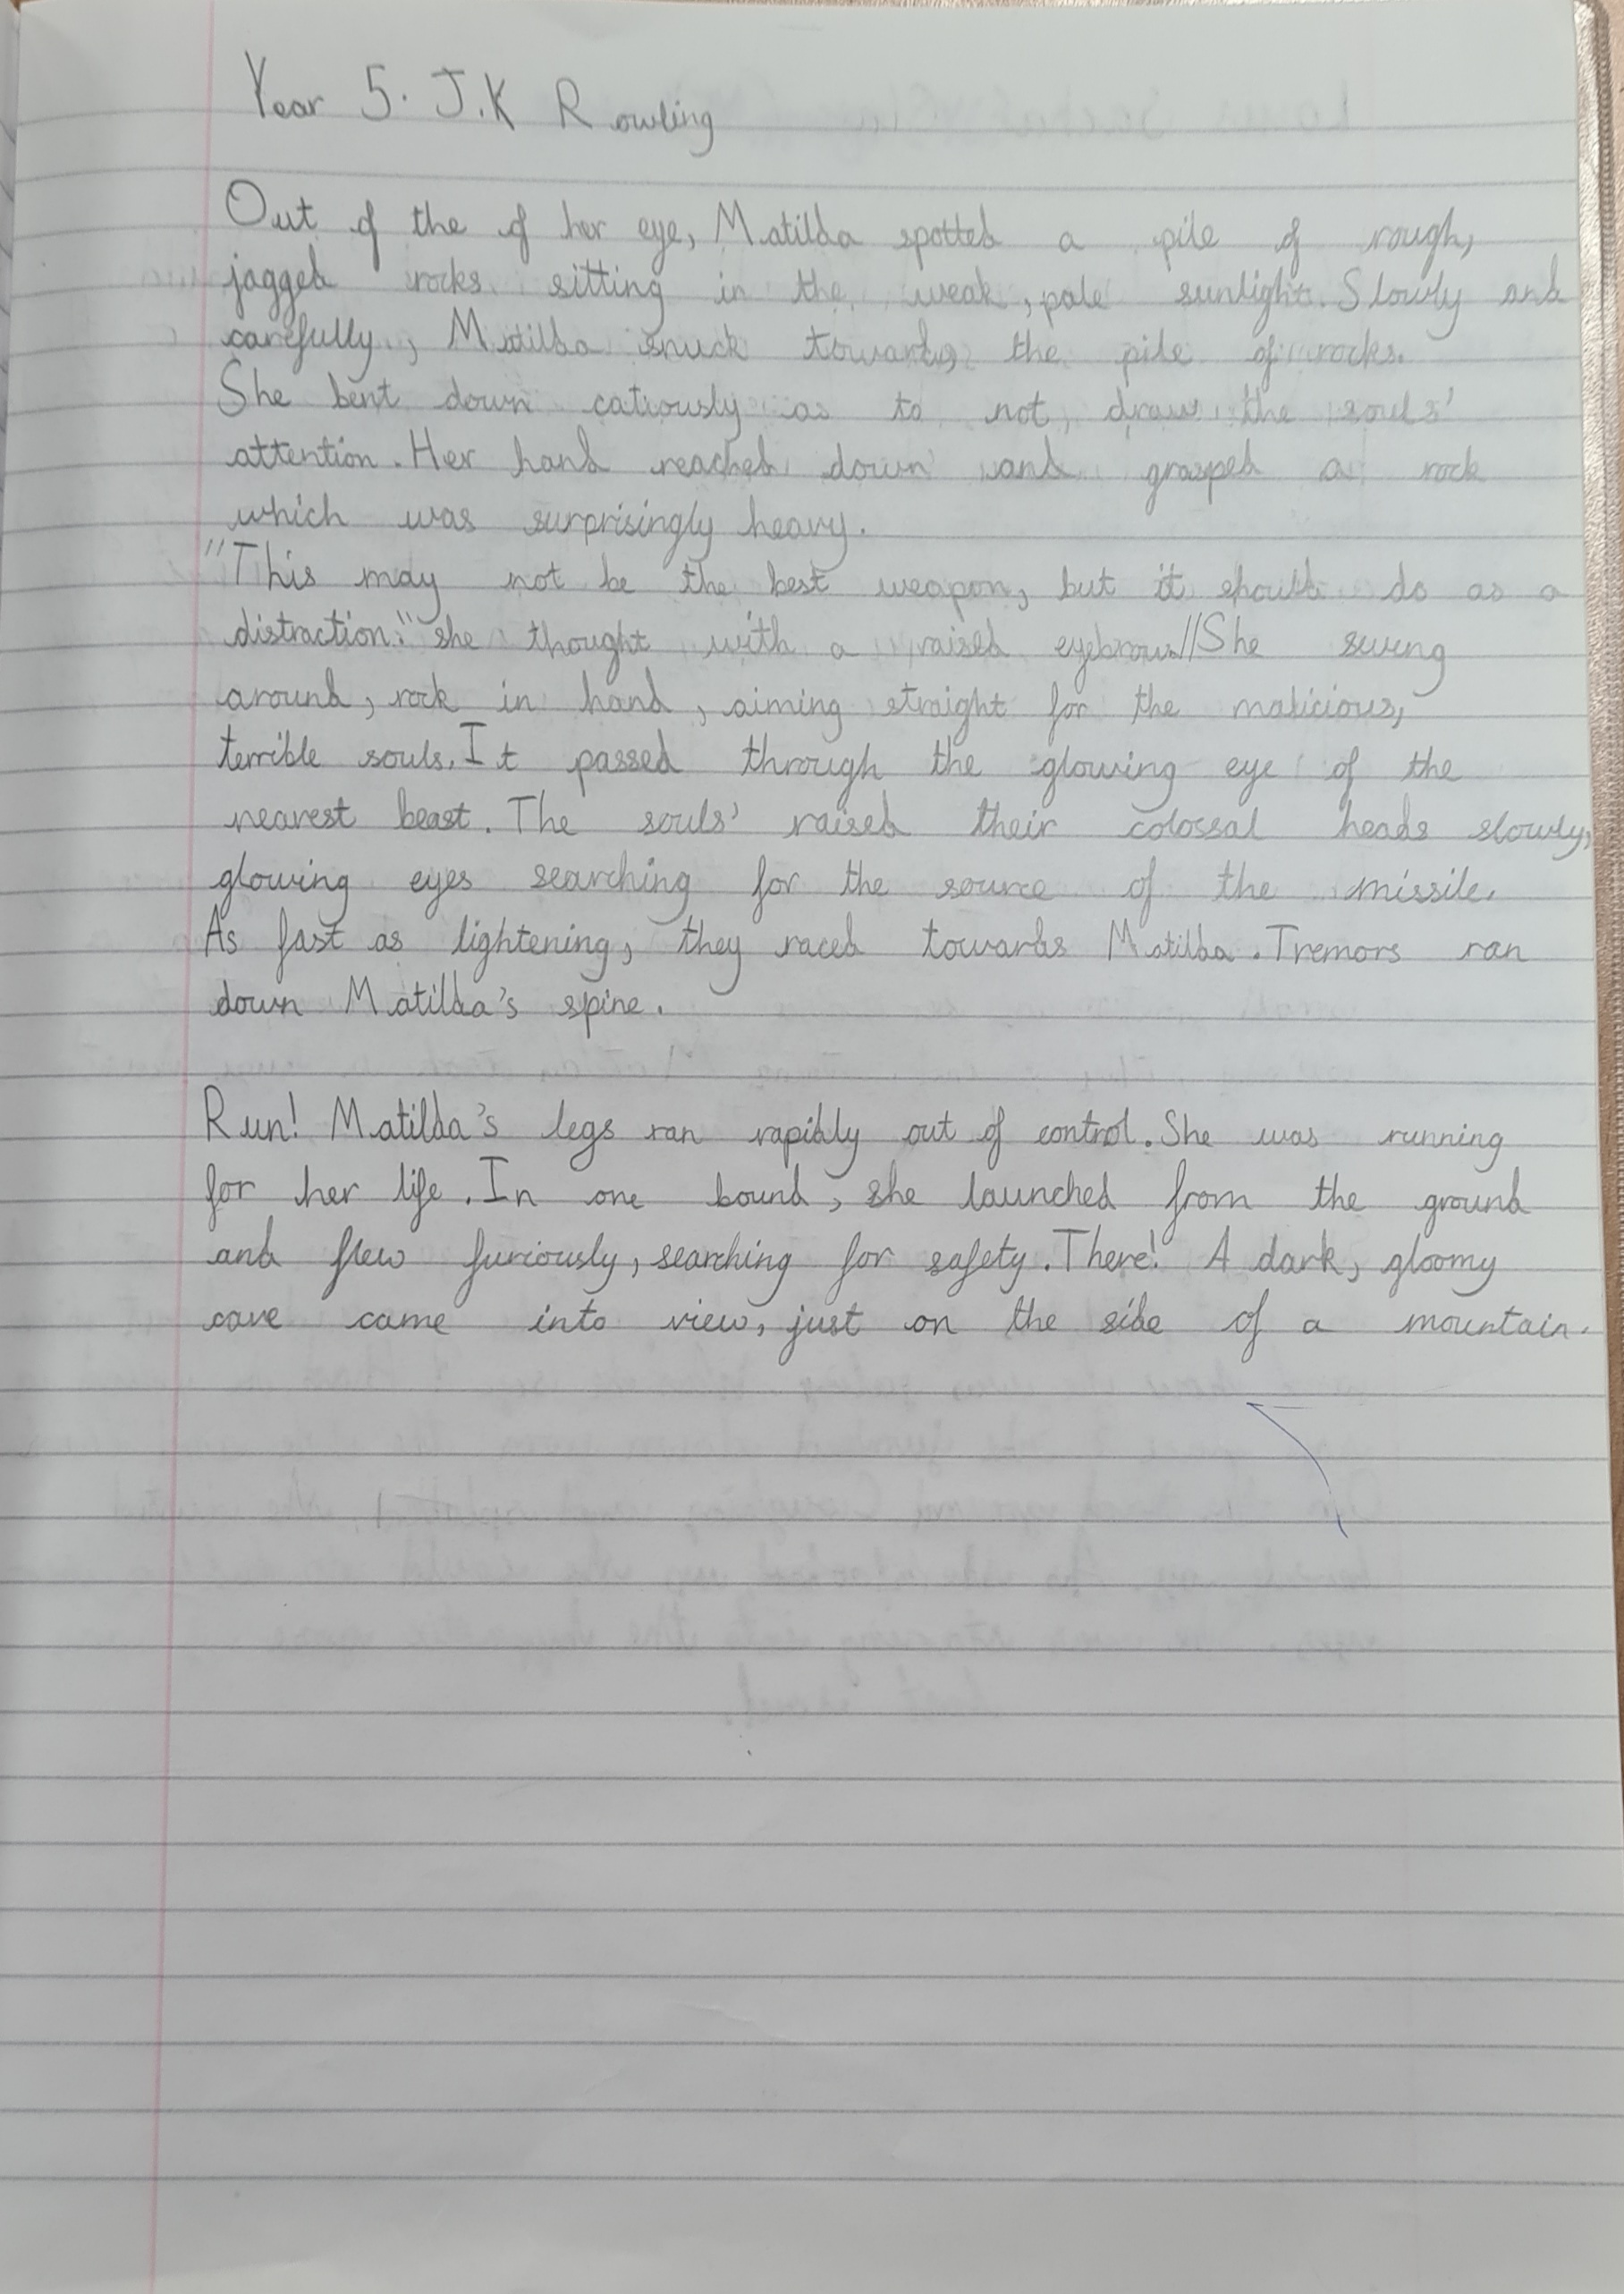 Year 5. J.K Rowling
Out of the of her eye, Matilda spotted a pile of rough,
jagged rocks sitting in the weak, pale sunlight. Slowly and
carefully, Matilda snuck towards the pile of rocks.
She bent down catiously as to not draw the souls'
attention. Her hand reached down and grasped a rock
which was surprisingly heavy.
"This may not be the best weapon, but it should do as a
distraction." she thought with a raised eyebrow.//She swung
around, rock in hand, aiming straight for the malicious,
terrible souls. It passed through the glowing eye of the
nearest beast. The souls' raised their colossal heads slowly,
glowing eyes searching for the source of the missile.
As fast as lightening, they raced towards Matilda. Tremors ran
down Matilda's spine.
Run! Matilda's legs ran rapidly out of control. She was running
for her life. In one bound, she launched from the ground
and flew furiously, searching for safety. There! A dark, gloomy
cave came into view, just on the side of a mountain.